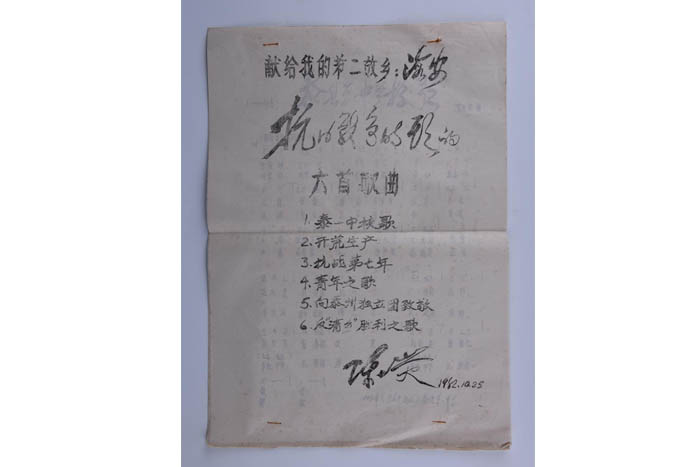 献给我的第二故乡：海安
抗日战争时期的
六首歌曲
1. 泰一中校歌
2. 开荒生产
3. 抗战第七年
4. 青年之歌
5. 向泰州独立团致敬
6. 反"清乡"胜利之歌
1982.10.25